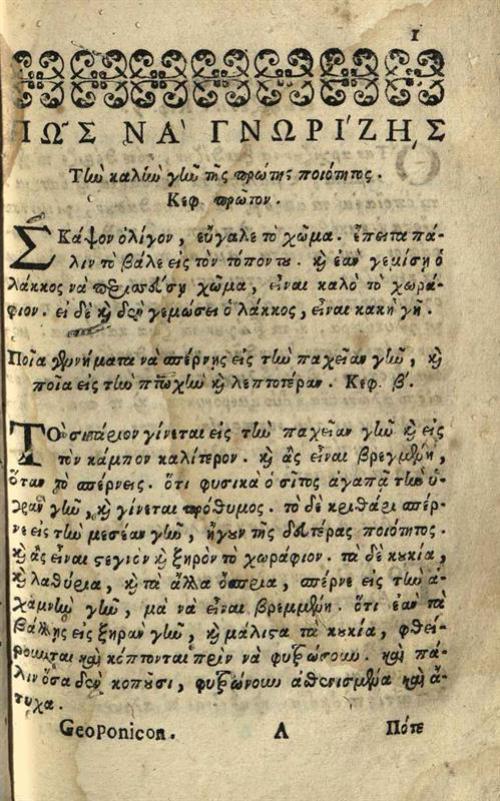 1
ΠΩ͂Σ ΝᾺ ΓΝΩΡΊΖῌΣ
Τὴν καλὴν γῆν τῆς πρώτης ποιότητος.
Κεφ. πρῶτον.
ΣΚάψον ὀλίγον, εὔγαλε τὸ χῶμα. ἔπειτα πά-
λιν τὸ βάλε εἰς τὸν τόπον του. καὶ ἐὰν γεμίσῃ ὁ
λάκκος νὰ περισσεύσῃ χῶμα, εἶναι καλὸ τὸ χωρά-
φιον. εἰ δὲ καὶ δὲν γεμώσει ὁ λάκκος, εἶναι κακὴ γῆ.
Ποῖα γεννήματα νὰ σπέρνῃς εἰς τὴν παχεῖαν γῆν, καὶ
ποῖα εἰς τὴν πτωχὴν καὶ λεπτοτέραν. Κεφ. β'.
ΤῸ σιτάριον γίνεται εἰς τὴν παχεῖαν γῆν καὶ εἰς
τὸν κάμπον καλίτερον. καὶ ἂς εἶναι βρεγμένη,
ὅταν τὸ σπέρνεις. ὅτι φυσικὰ ὁ σῖτος ἀγαπᾶ τὴν ὑ-
γρὰν γῆν, καὶ γίνεται πρόθυμος. τὸ δὲ κριθάρι σπέρ-
νε εἰς τὴν μεσέαν γῆν, ἤγουν τῆς δευτέρας ποιότητος.
καὶ ἂς εἶναι στεγνὸν καὶ ξηρὸν τὸ χωράφιον. τὰ δὲ κυκία,
καὶ λαθύρια, καὶ τὰ ἄλλα ὄσπρια, σπέρνε εἰς τὴν ἀ-
χαμνὴν γῆν, μὰ νὰ εἶναι βρεμμένη. ὅτι ἐὰν τὰ
βάλλῃς εἰς ξηρὰν γῆν, καὶ μάλιστα τὰ κυκία, φθεί-
ρουνται καὶ κόπτονται πρὶν νὰ φυτρώσουν. καὶ πά-
λιν ὅσα δὲν κοποῦσι, φυτρώνουν ἀθενισμένα καὶ ἄ-
τυχα.
Geoponicon. Α Πότε